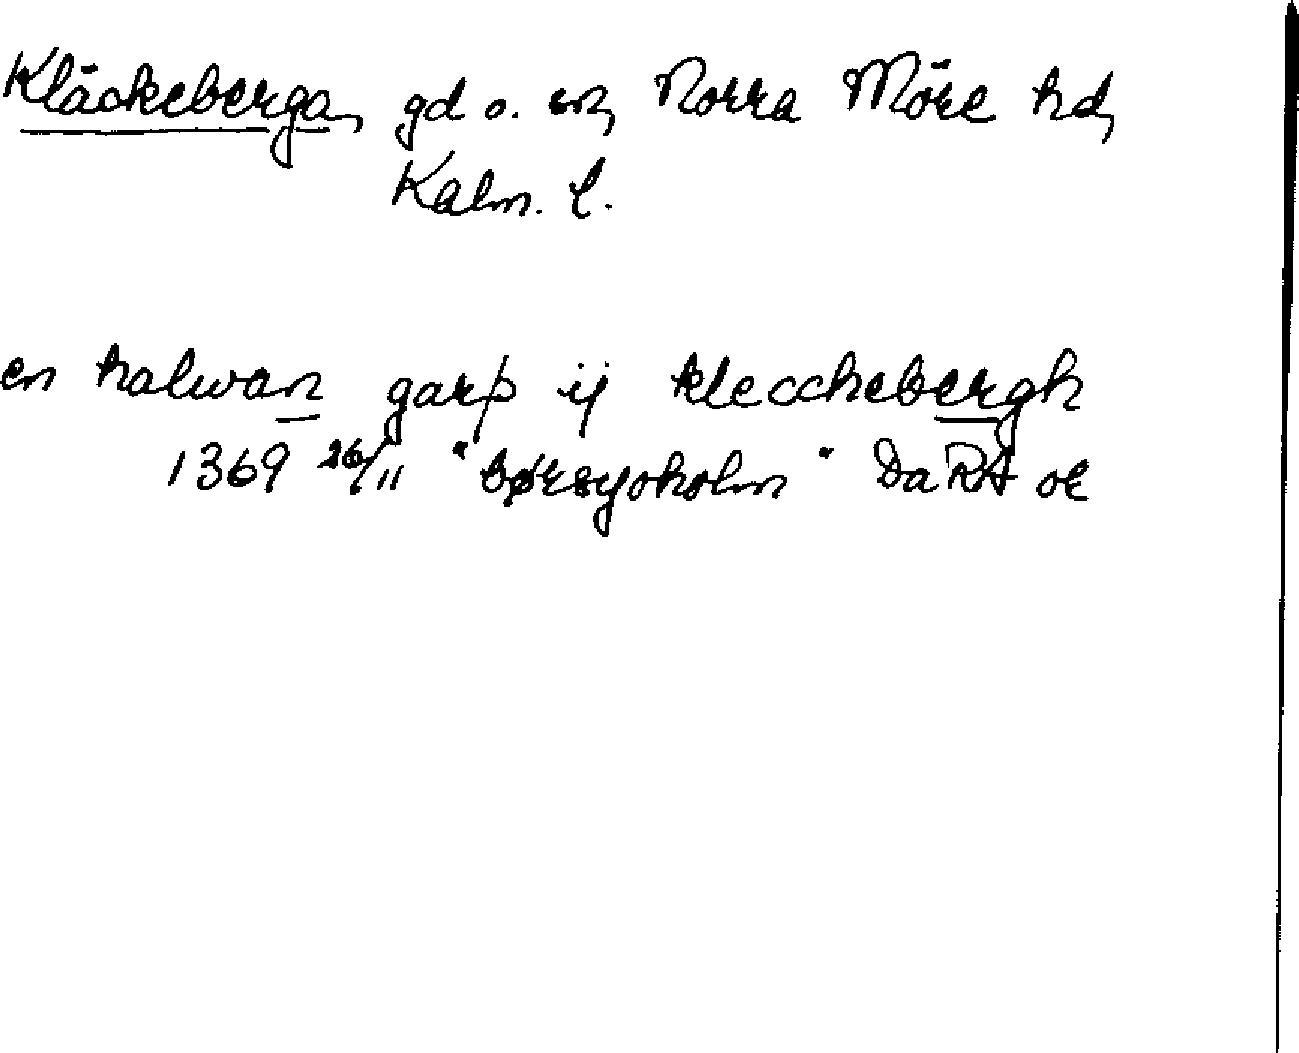 Kläckeberga, gd o. sn, Norra Möre hd,
Kalm. l.
en halwan garþ ij klecchebergh
1369 26/11 "børsyoholm" DaRA or